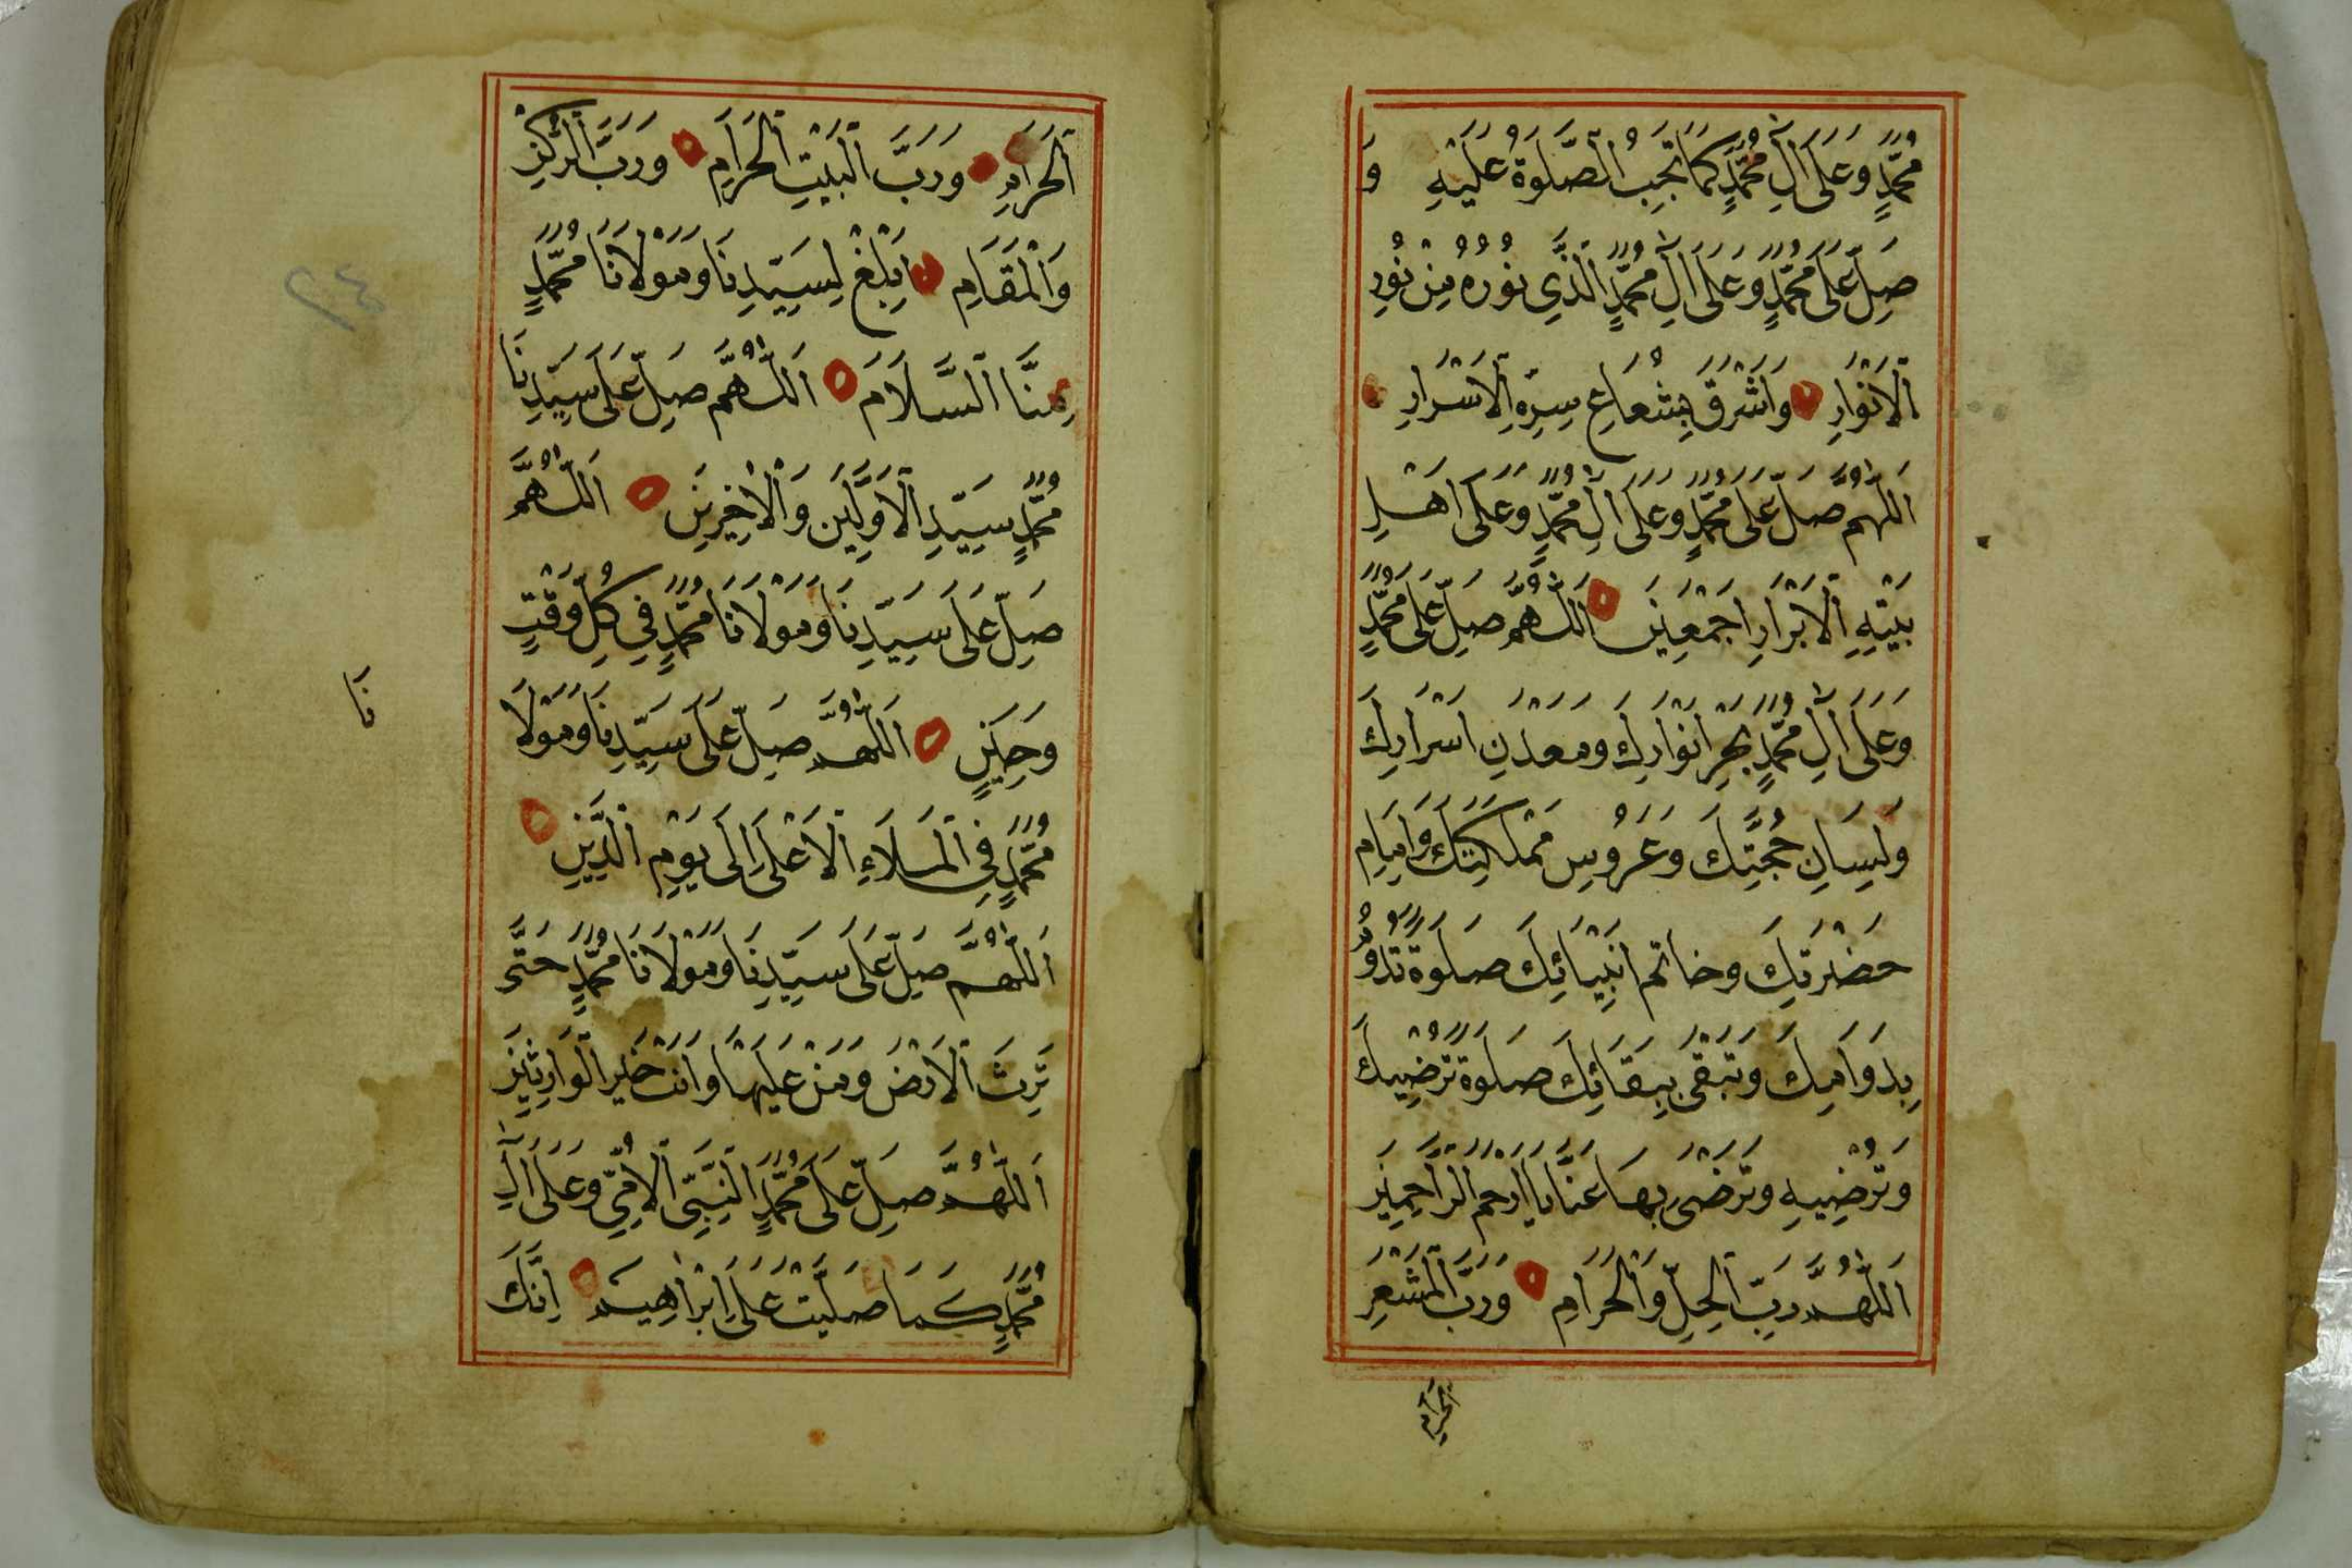 مُحَمَّدٍ وَعَلَى اٰلِ مُحَمَّدٍ كَمَا تَجِبُ الصَّلٰوةُ عَلَيْهِ وَ
صَلِّ عَلَى مُحَمَّدٍ وَعَلَى اٰلِ مُحَمَّدٍ الَّذِي نُوْرُهُ مِنْ نُوْرِ
الْاَنْوَارِ وَاَشْرَقَ بِشُعَاعِ سِرِّهِ الْاَسْرَارِ
اَللّٰهُمَّ صَلِّ عَلَى مُحَمَّدٍ وَعَلَى اٰلِ مُحَمَّدٍ وَعَلَى اَهْلِ
بَيْتِهِ الْاَبْرَارِ اَجْمَعِيْنَ اَللّٰهُمَّ صَلِّ عَلَى مُحَمَّدٍ
وَعَلَى اٰلِ مُحَمَّدٍ بَحْرِ اَنْوَارِكَ وَمَعْدَنِ اَسْرَارِكَ
وَلِسَانِ حُجَّتِكَ وَعَرُوْسِ مَمْلَكَتِكَ وَاِمَامِ
حَضْرَتِكَ وَخَاتَمِ اَنْبِيَائِكَ صَلٰوةً تَدُوْمُ
بِدَوَامِكَ وَتَبْقَى بِبَقَائِكَ صَلٰوةً تُرْضِيْكَ
وَتُرْضِيْهِ وَتَرْضٰى بِهَا عَنَّا يَا اَرْحَمَ الرَّاحِمِيْنَ
اَللّٰهُمَّ رَبَّ الْحِلِّ وَالْحَرَامِ وَرَبَّ الْمَشْعَرِ
الْحَرَامِ
الْحَرَامِ وَرَبَّ الْبَيْتِ الْحَرَامِ وَرَبَّ الرُّكْنِ
وَالْمَقَامِ اَبْلِغْ لِسَيِّدِنَا وَمَوْلَانَا مُحَمَّدٍ
مِنَّا السَّلَامَ اَللّٰهُمَّ صَلِّ عَلَى سَيِّدِنَا
مُحَمَّدٍ سَيِّدِ الْاَوَّلِيْنَ وَالْاٰخِرِيْنَ اَللّٰهُمَّ
صَلِّ عَلَى سَيِّدِنَا وَمَوْلَانَا مُحَمَّدٍ فِي كُلِّ وَقْتٍ
وَحِيْنٍ اَللّٰهُمَّ صَلِّ عَلَى سَيِّدِنَا وَمَوْلَا
نَا
مُحَمَّدٍ فِي الْمَلَاءِ الْاَعْلَى اِلَى يَوْمِ الدِّيْنِ
اَللّٰهُمَّ صَلِّ عَلَى سَيِّدِنَا وَمَوْلَانَا مُحَمَّدٍ حَتَّى
تَرِثَ الْاَرْضَ وَمَنْ عَلَيْهَا وَاَنْتَ خَيْرُ الْوَارِثِيْنَ
اَللّٰهُمَّ صَلِّ عَلَى مُحَمَّدٍ النَّبِيِّ الْاُمِّيِّ وَعَلَى اٰلِ
مُحَمَّدٍ كَمَا صَلَّيْتَ عَلَى اِبْرَاهِيْمَ اِنَّكَ
٢٤